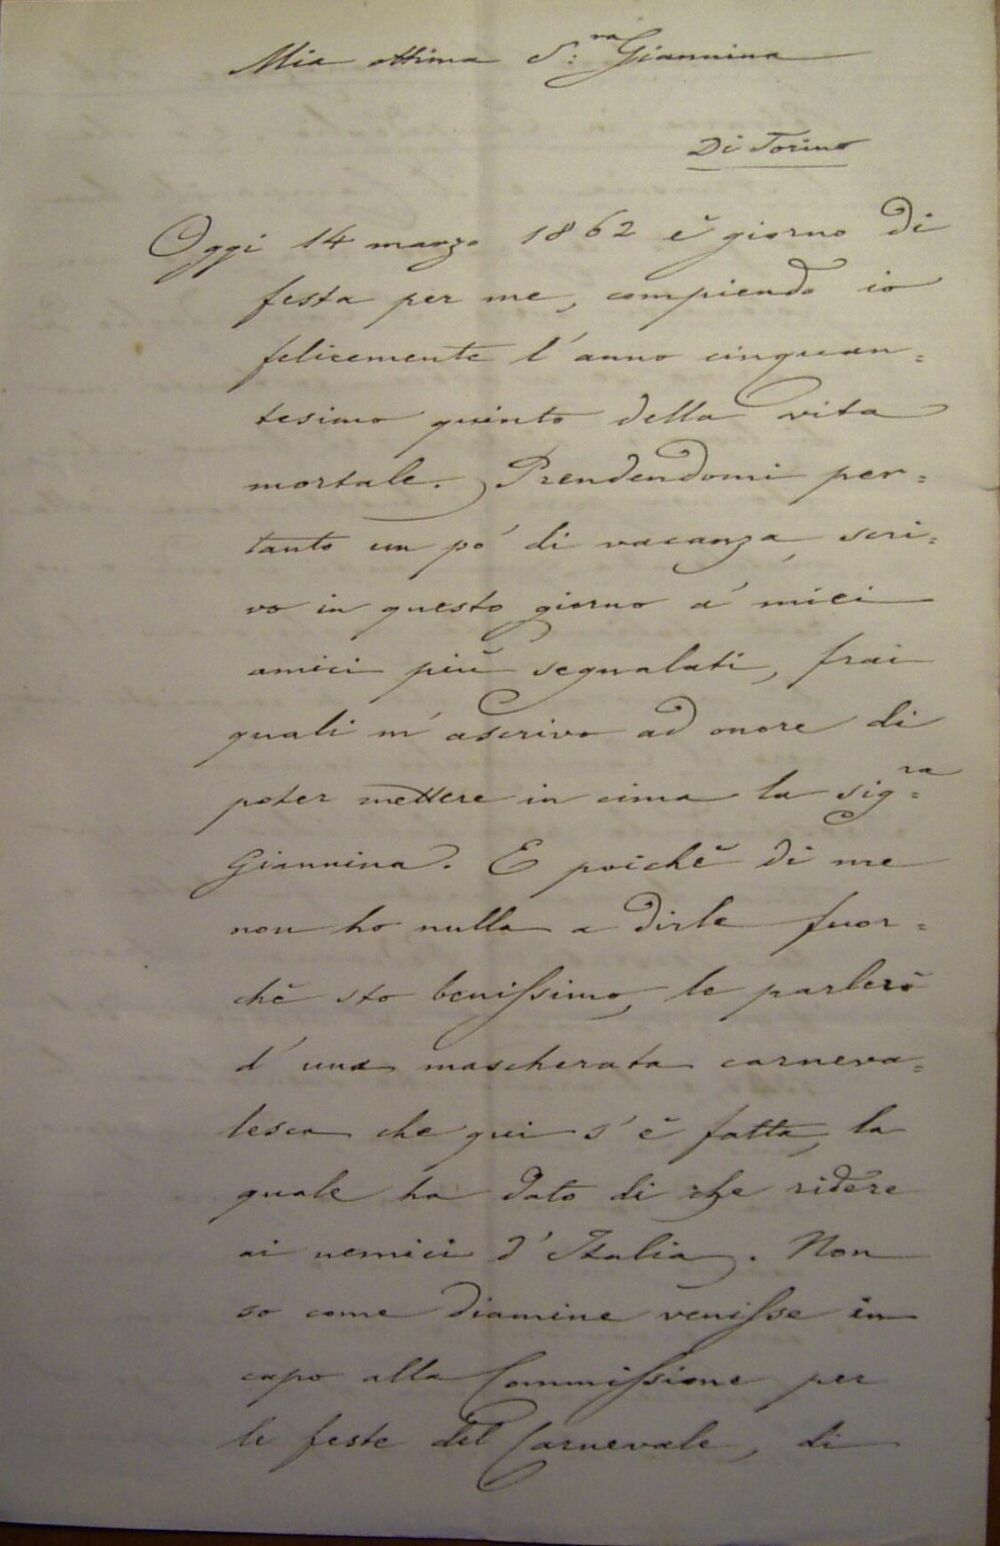 Mia ottima S:ra Giannina
Di Torino
Oggi 14 marzo 1862 è giorno di
festa per me, compiendo io
felicemente l'anno cinquan=
tesimo quinto della vita
mortale. Prendendomi per=
tanto un pó di vacanza, scri=
vo in questo giorno a' miei
amici più segnalati, frai
quali m'ascrivo ad onore di
poter mettere in cima la sig:ra
Giannina. E poichè di me
non ho nulla a dirle fuor=
chè sto benissimo, le parlerò
d'una mascherata carneva=
lesca che qui s'è fatta, la
quale ha dato di che ridere
ai nemici d'Italia. Non
so come diamine venisse in
capo alla Commissione per
le feste del Carnevale, di